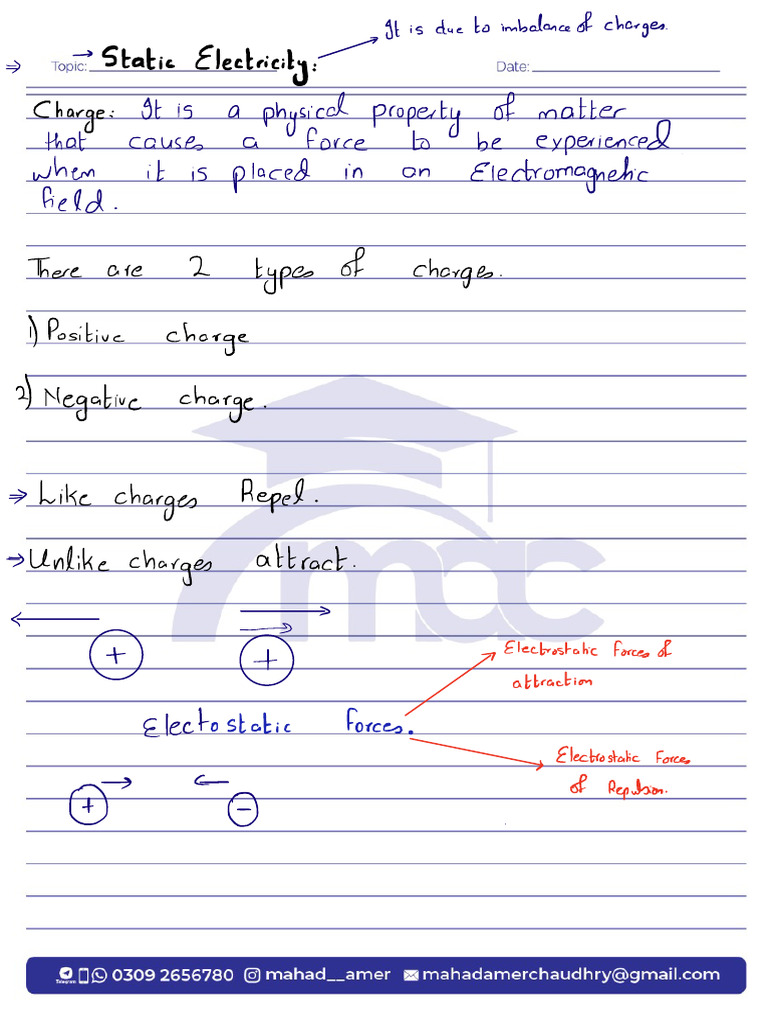 It is due to imbalance of charges.
⇒ Topic: → Static Electricity: Date:
Charge: It is a physical property of matter
that causes a force to be experienced
when it is placed in an Electromagnetic
field.
There are 2 types of charges.
1) Positive charge
2) Negative charge.
⇒ Like charges Repel.
⇒ Unlike charges attract.
mac
+ +
Electrostatic Forces of
attraction
Electostatic Forces.
Electrostatic Forces
of Repulson.
+ −
Telegram 0309 2656780 mahad__amer mahadamerchaudhry@gmail.com